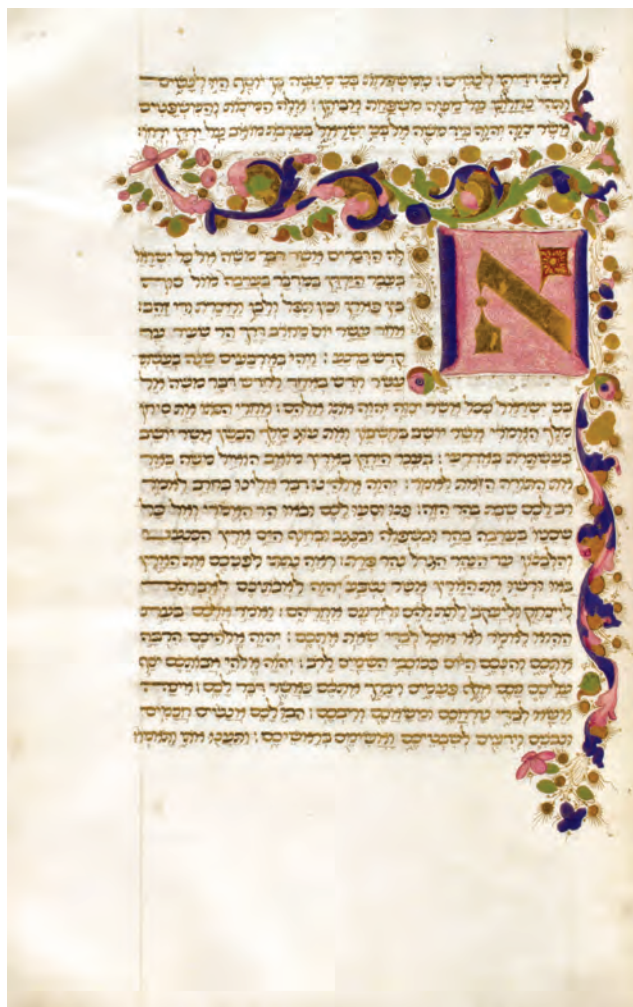 לבני דדיהן לנשים: ממשפחת בני מנשה בן יוסף היו לנשים
ותהי נחלתן על מטה משפחת אביהן: אלה המצות והמשפטים
אשר צוה יהוה ביד משה אל בני ישראל בערבת מואב על ירדן ירחו
א
לה הדברים אשר דבר משה אל כל ישראל
בעבר הירדן במדבר בערבה מול סוף
בין פארן ובין תפל ולבן וחצרת ודי זהב:
אחד עשר יום מחרב דרך הר שעיר עד
קדש ברנע: ויהי בארבעים שנה בעשתי
עשר חדש באחד לחדש דבר משה אל
בני ישראל ככל אשר צוה יהוה אתו אלהם: אחרי הכתו את סיחן
מלך האמרי אשר יושב בחשבון ואת עוג מלך הבשן אשר יושב
בעשתרת באדרעי: בעבר הירדן בארץ מואב הואיל משה באר
את התורה הזאת לאמר: יהוה אלהינו דבר אלינו בחרב לאמר
רב לכם שבת בהר הזה: פנו וסעו לכם ובאו הר האמרי ואל כל
שכניו בערבה בהר ובשפלה ובנגב ובחוף הים ארץ הכנעני
והלבנון עד הנהר הגדל נהר פרת: ראה נתתי לפניכם את הארץ
באו ורשו את הארץ אשר נשבע יהוה לאבתיכם לאברהם
ליצחק וליעקב לתת להם ולזרעם אחריהם: ואמר אלכם בעת
ההוא לאמר לא אוכל לבדי שאת אתכם: יהוה אלהיכם הרבה
אתכם והנכם היום ככוכבי השמים לרב: יהוה אלהי אבותכם יסף
עליכם ככם אלף פעמים ויברך אתכם כאשר דבר לכם: איכה
אשא לבדי טרחכם ומשאכם וריבכם: הבו לכם אנשים חכמים
ונבנים וידעים לשבטיכם ואשימם בראשיכם: ותענו אתי ותאמרו